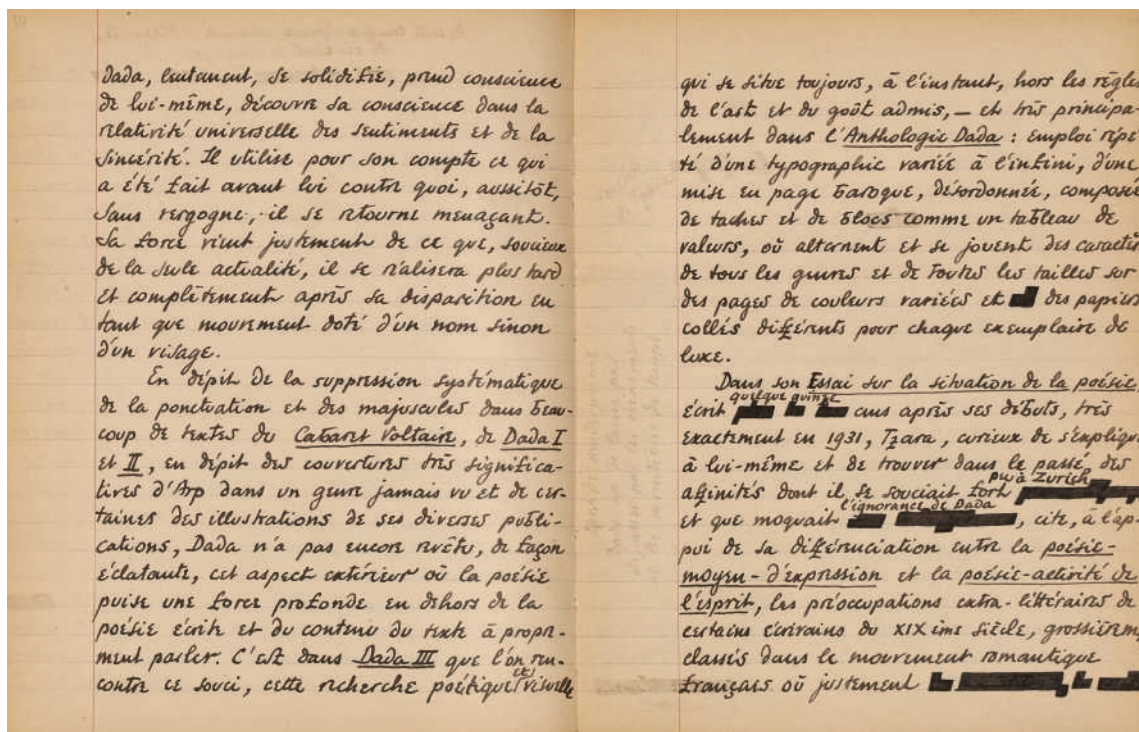 Dada, lentement, se solidifie, prend conscience
de lui-même, découvre sa conscience dans la
relativité universelle des sentiments et de la
sincérité. Il utilise pour son compte ce qui
a été fait avant lui contre quoi, aussitôt,
sans vergogne, il se retourne menaçant.
Sa force vient justement de ce que, soucieux
de la seule actualité, il se réalisera plus tard
et complètement après sa disparition en
tant que mouvement doté d'un nom sinon
d'un visage.
En dépit de la suppression systématique
de la ponctuation et des majuscules dans beau-
coup de textes du Cabaret Voltaire, de Dada I
et II, en dépit des couvertures très significa-
tives d'Arp dans un genre jamais vu et de cer-
taines des illustrations de ses diverses publi-
cations, Dada n'a pas encore revêtu, de façon
éclatante, cet aspect extérieur où la poésie
puise une force profonde en dehors de la
poésie écrite et du contenu du texte à propre-
ment parler. C'est dans Dada III que l'on ren-
contre ce souci, cette recherche poétique et visuelle
qui se situe toujours, à l'instant, hors les règles
de l'art et du goût admis, — et très principa-
lement dans l'Anthologie Dada : emploi répé-
té d'une typographie variée à l'infini, d'une
mise en page baroque, désordonnée, composée
de taches et de blocs comme un tableau de
valeurs, où alternent et se jouent des caractèr
de tous les genres et de toutes les tailles sur
des pages de couleurs variées et des papiers
collés différents pour chaque exemplaire de
luxe.
Dans son Essai sur la situation de la poésie,
écrit quelque quinze ans après ses débuts, très
exactement en 1931, Tzara, curieux de s'expliqu
à lui-même et de trouver dans le passé des
affinités dont il se souciait fort peu à Zurich
et que moquait l'ignorance de Dada, cite, à l'ap-
pui de sa différenciation entre la poésie-
moyen-d'expression et la poésie-activité de
l'esprit, les préoccupations extra-littéraires de
certains écrivains du XIXème siècle, grossièrem
classés dans le mouvement romantique
français où justement